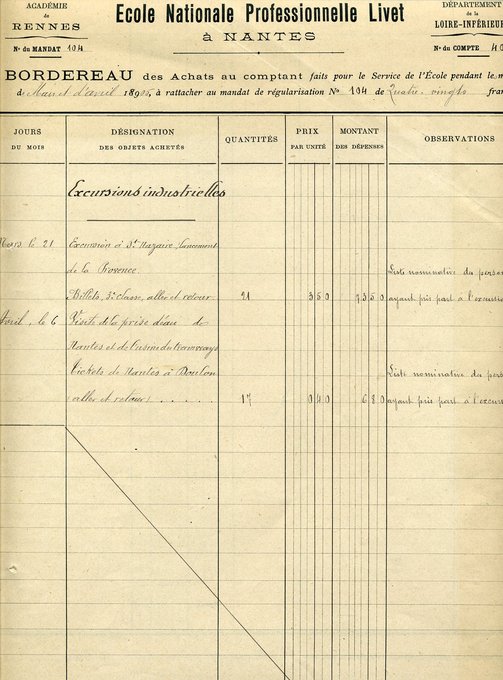 ACADÉMIE
de
RENNES
N° du MANDAT 104
Ecole Nationale Professionnelle Livet
à NANTES
DÉPARTEMENT
de la
LOIRE-INFÉRIEUR
N° du COMPTE 40
BORDEREAU des Achats au comptant faits pour le Service de l'École pendant le m
de Mars et d'avril 1890, à rattacher au mandat de régularisation N° 104 de Quatre-vingts fran
JOURS
DU MOIS
DÉSIGNATION
DES OBJETS ACHETÉS
QUANTITÉS
PRIX
PAR UNITÉ
MONTANT
DES DÉPENSES
OBSERVATIONS
Excursions industrielles
Mars, le 21 Excursion à St Nazaire, lancement
de la Provence. Liste nominative des person
Billets, 3e classe, aller et retour 21 3 50 73 50 ayant pris part à l'excursio
Avril, le 6 Visite de la prise d'eau de
Nantes et de l'usine du tramways
Tickets de Nantes à Doulon Liste nominative des pers
(aller et retour) . . . . . 17 0 40 6 80 ayant pris part à l'excurs